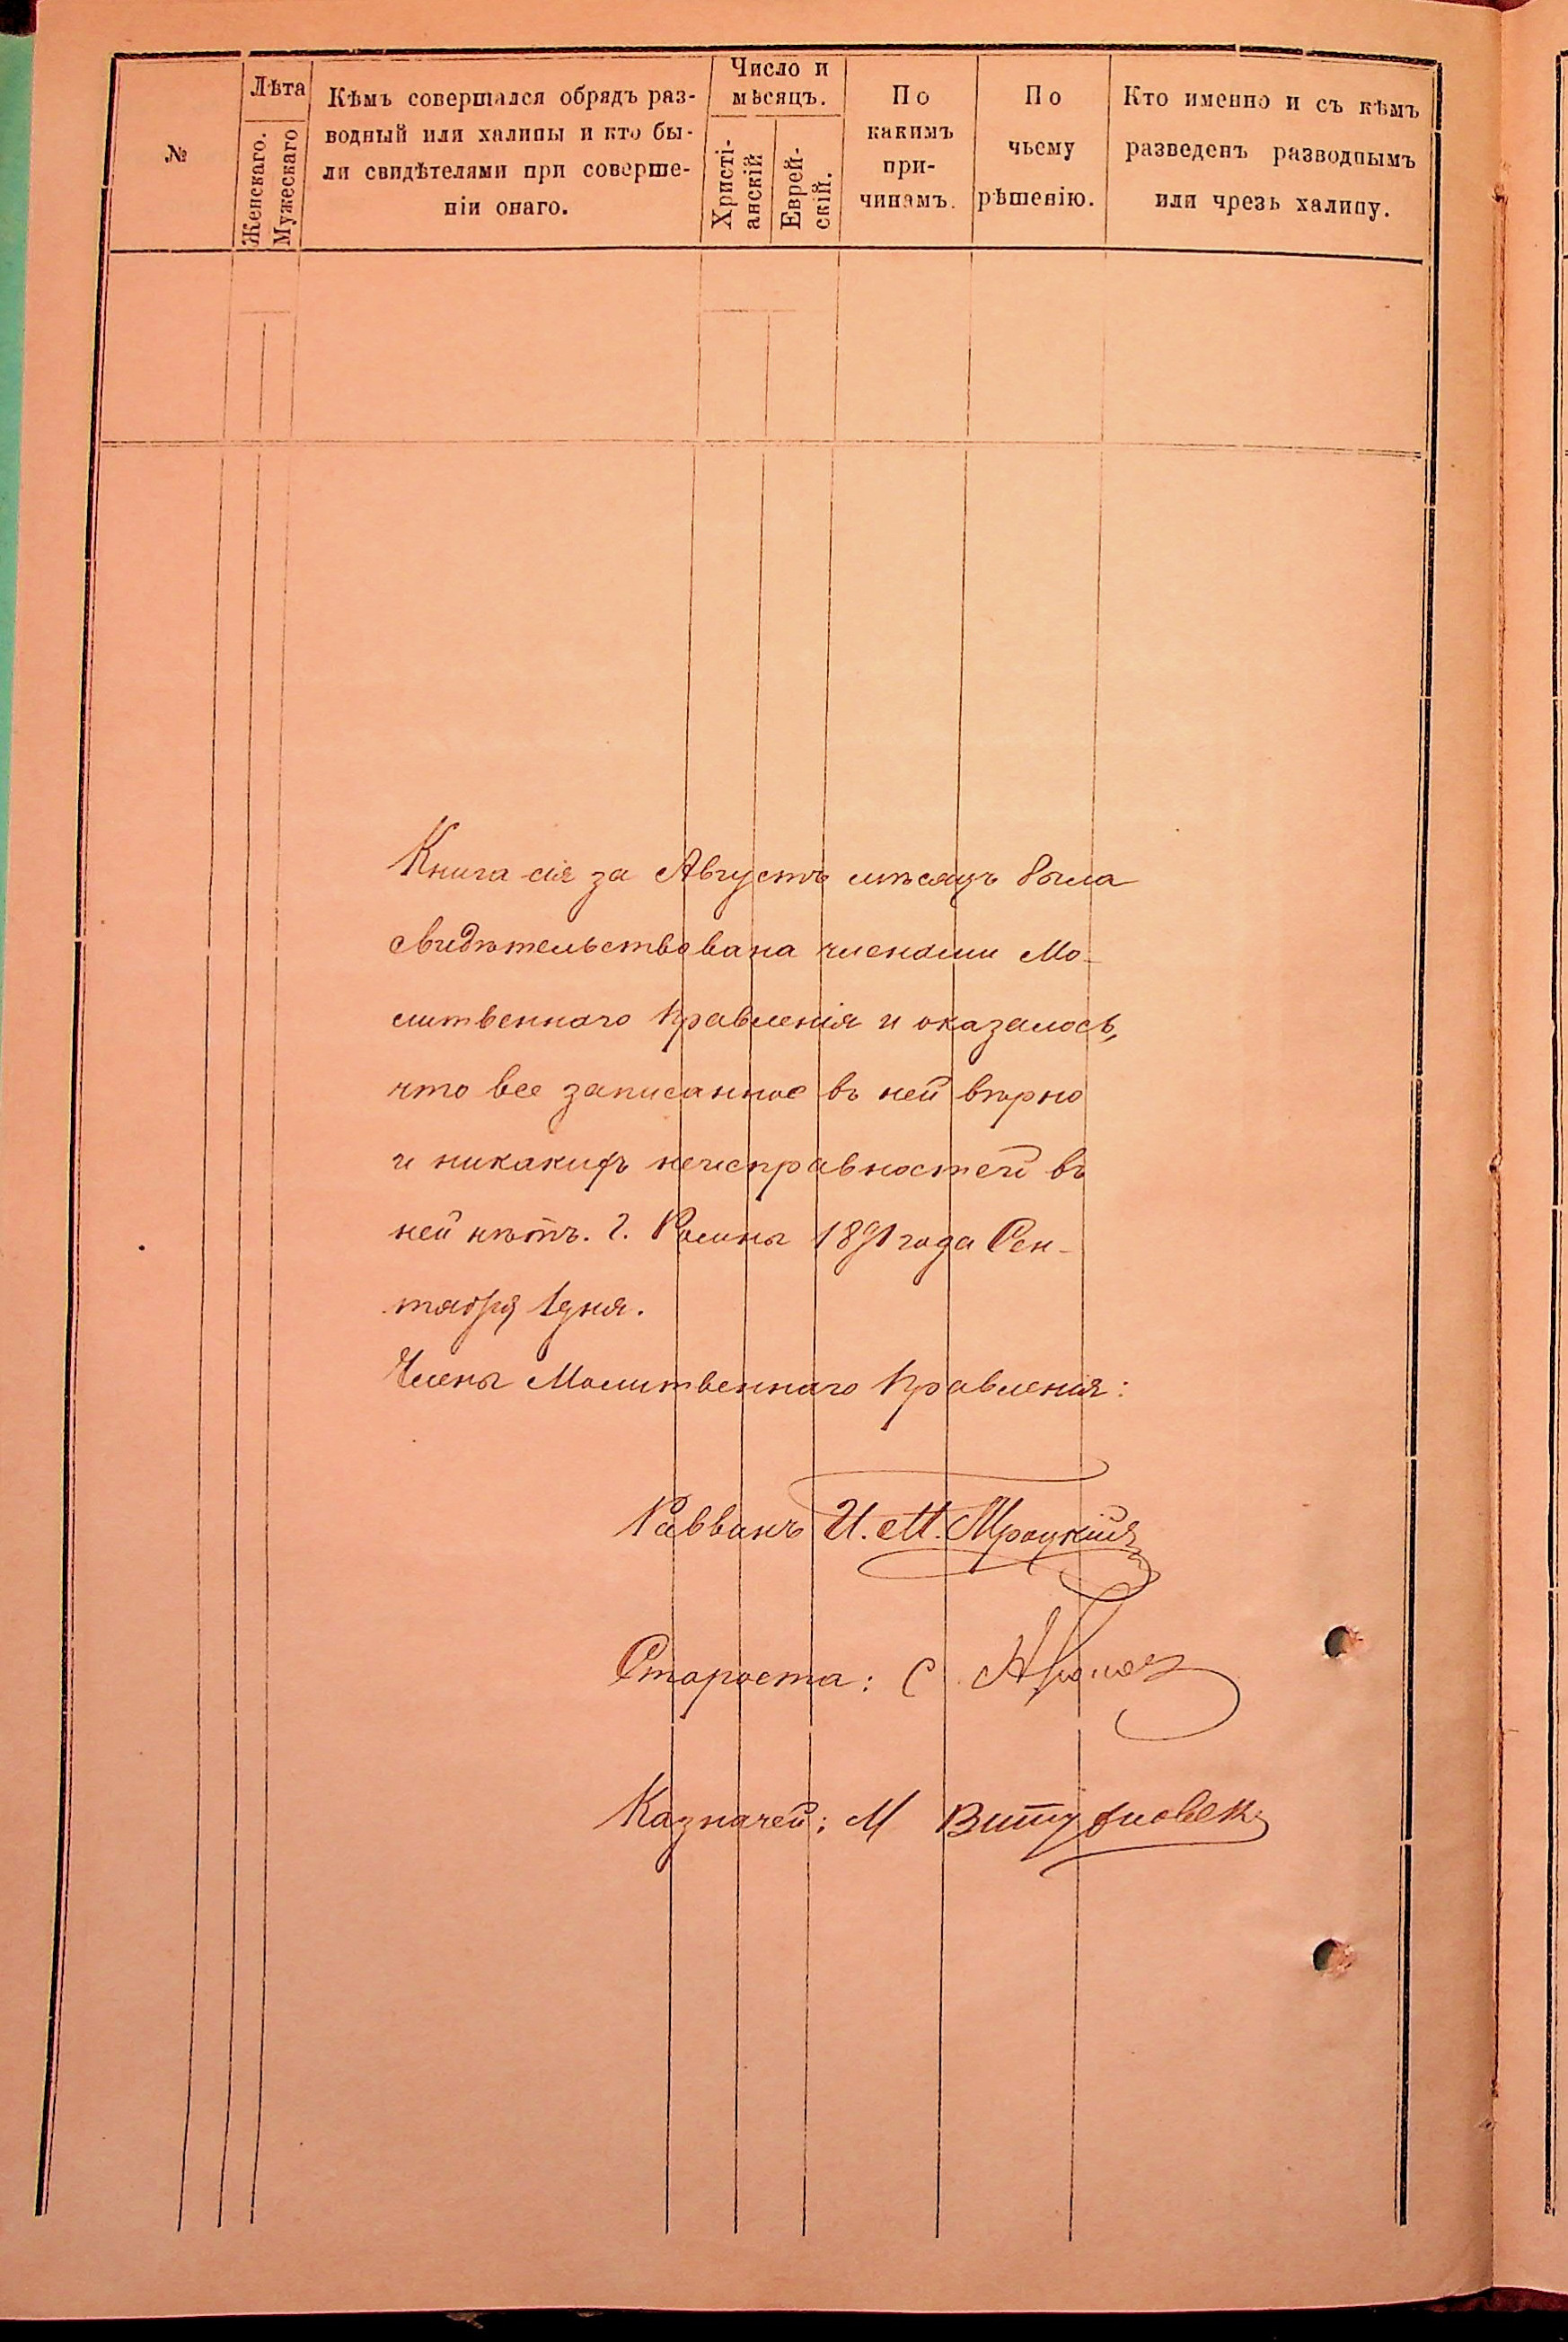 №
Лѣта
Женскаго.
Мужескаго
Кѣмъ совершался обрядъ раз-
водный или халицы и кто бы-
ли свидѣтелями при соверше-
ніи онаго.
Число и
мѣсяцъ.
Христі-
анскій
Еврей-
скій.
По
какимъ
при-
чинамъ.
По
чьему
рѣшенію.
Кто именно и съ кѣмъ
разведенъ разводнымъ
или чрезъ халицу.
Книга сія за Августъ мѣсяцъ была
свидѣтельствована членами Мо-
литвеннаго Правленія и оказалось,
что все записанное въ ней вѣрно
и никакихъ неисправностей въ
ней нѣтъ. Г. Ромны 1891 года Сен-
тября 1 дня.
Члены Молитвеннаго Правленія:
Раввинъ И. М. Троцкій
Староста: С.
Казначей: М